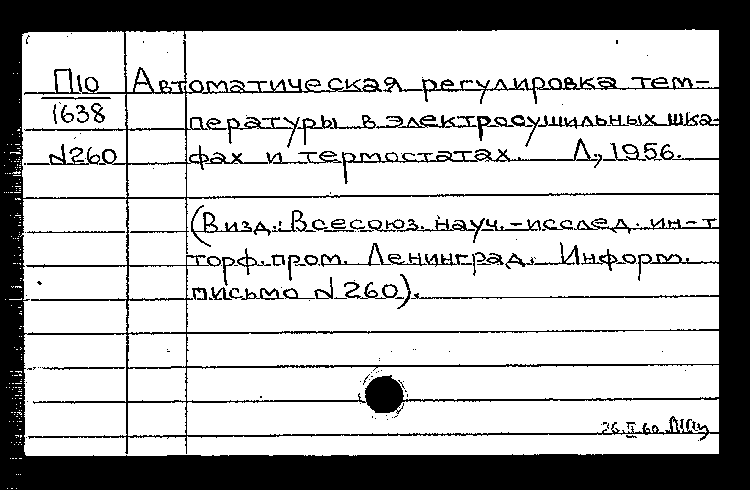 П10 Автоматическая регулировка тем-
1638 пературы в электросушильных шка-
№260 фах и термостатах. Л., 1956.
(В изд.: Всесоюз. науч.-исслед. ин-т
торф.пром. Ленинград. Информ.
письмо №260).
26.II.60